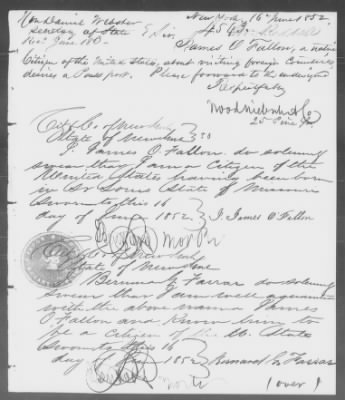 Hon Daniel Webster New York 16th June 1852
Secretary of State
Sir
James O Fallon, a native
Citizen of the United States, about visiting foreign Countries
desires a Passport. Please forward to the undersigned
Respectfully
25 Pine St
City & Co of New York
State of New York } SS
I. James O. Fallon. do solemnly
swear that I am a Citizen of the
United States having been born
in St Louis State of Missouri
Sworn to this 16
day of June 1852 } J. James O Fallon
City & Co of New York
State of New York
I Bernard G Farrar do solemnly
swear that I am well acquainted
with the above named James
O Fallon and know him to
be a Citizen of the U. States
Sworn to this 16
day of June 1852 } Bernard G Farrar
(over)